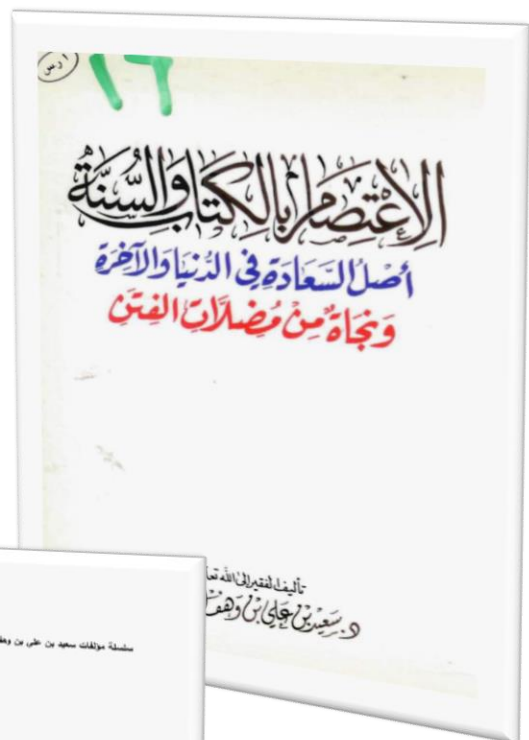 الاعتصام بالكتاب والسنة
أصل السعادة في الدنيا والآخرة
ونجاة من مضلات الفتن
تأليف الفقير إلى الله
د. سعيد بن علي بن
سلسلة مؤلفات سعيد بن على بن